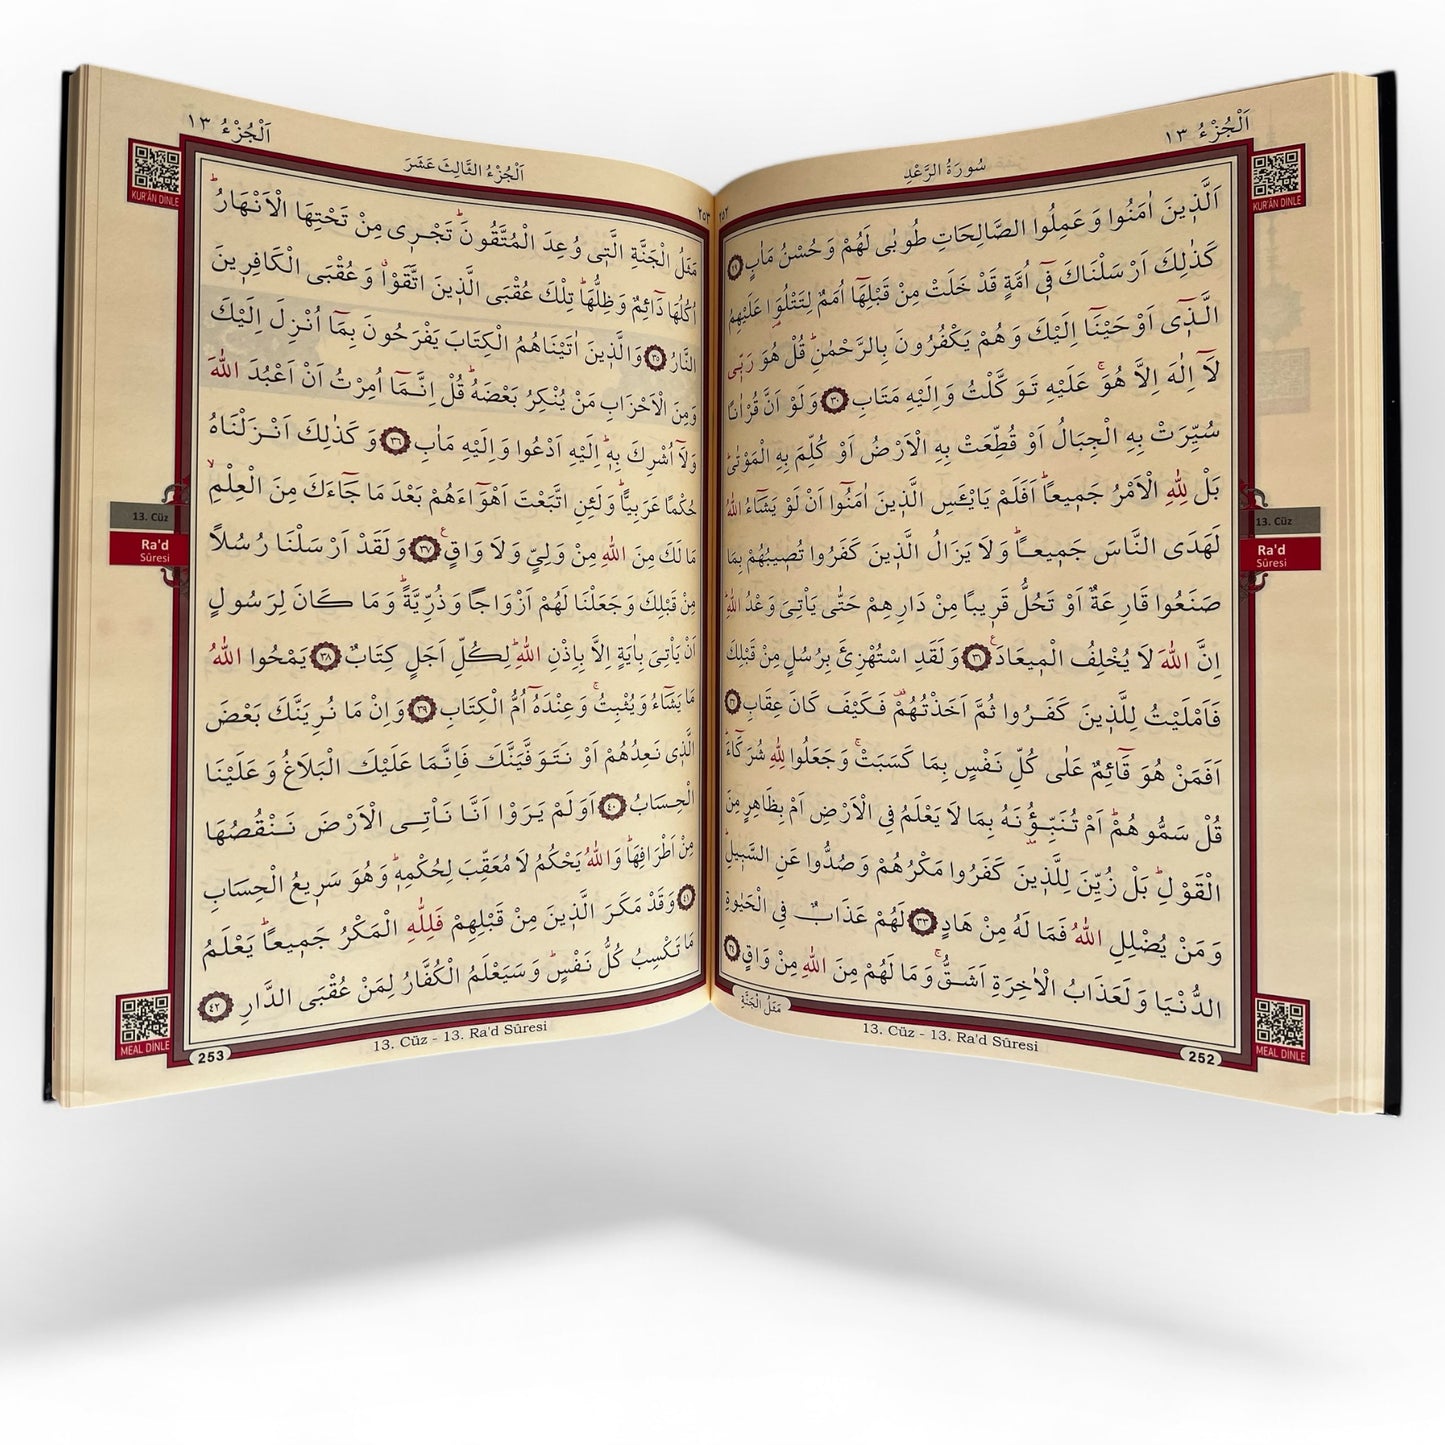 اَلْجُزْءُ ١٣
سُورَةُ الرَّعْدِ
٢٥٢
KUR'ÂN DİNLE
اَلَّذ۪ينَ اٰمَنُوا وَعَمِلُوا الصَّالِحَاتِ طُوبٰى لَهُمْ وَحُسْنُ مَاٰبٍ ٢٩
كَذٰلِكَ اَرْسَلْنَاكَ ف۪ٓي اُمَّةٍ قَدْ خَلَتْ مِنْ قَبْلِهَٓا اُمَمٌ لِتَتْلُوَ۬ا عَلَيْهِمُ
الَّذ۪ٓي اَوْحَيْنَٓا اِلَيْكَ وَهُمْ يَكْفُرُونَ بِالرَّحْمٰنِۜ قُلْ هُوَ رَبّ۪ي
لَٓا اِلٰهَ اِلَّا هُوَۚ عَلَيْهِ تَوَكَّلْتُ وَاِلَيْهِ مَتَابِ ٣٠ وَلَوْ اَنَّ قُرْاٰناً
سُيِّرَتْ بِهِ الْجِبَالُ اَوْ قُطِّعَتْ بِهِ الْاَرْضُ اَوْ كُلِّمَ بِهِ الْمَوْتٰىۜ
بَلْ لِلّٰهِ الْاَمْرُ جَم۪يعاًۜ اَفَلَمْ يَايْـَٔسِ الَّذ۪ينَ اٰمَنُٓوا اَنْ لَوْ يَشَٓاءُ اللّٰهُ
لَهَدَى النَّاسَ جَم۪يعاًۜ وَلَا يَزَالُ الَّذ۪ينَ كَفَرُوا تُص۪يبُهُمْ بِمَا
صَنَعُوا قَارِعَةٌ اَوْ تَحُلُّ قَر۪يباً مِنْ دَارِهِمْ حَتّٰى يَأْتِيَ وَعْدُ اللّٰهِۜ
اِنَّ اللّٰهَ لَا يُخْلِفُ الْم۪يعَادَ۟ ٣١ وَلَقَدِ اسْتُهْزِئَ بِرُسُلٍ مِنْ قَبْلِكَ
فَاَمْلَيْتُ لِلَّذ۪ينَ كَفَرُوا ثُمَّ اَخَذْتُهُمْ۠ فَكَيْفَ كَانَ عِقَابِ ٣٢
اَفَمَنْ هُوَ قَٓائِمٌ عَلٰى كُلِّ نَفْسٍ بِمَا كَسَبَتْۚ وَجَعَلُوا لِلّٰهِ شُرَكَٓاءَۜ
قُلْ سَمُّوهُمْۜ اَمْ تُنَبِّؤُ۫نَهُ بِمَا لَا يَعْلَمُ فِي الْاَرْضِ اَمْ بِظَاهِرٍ مِنَ
الْقَوْلِۜ بَلْ زُيِّنَ لِلَّذ۪ينَ كَفَرُوا مَكْرُهُمْ وَصُدُّوا عَنِ السَّب۪يلِۜ
وَمَنْ يُضْلِلِ اللّٰهُ فَمَا لَهُ مِنْ هَادٍ ٣٣ لَهُمْ عَذَابٌ فِي الْحَيٰوةِ
الدُّنْيَا وَلَعَذَابُ الْاٰخِرَةِ اَشَقُّۚ وَمَا لَهُمْ مِنَ اللّٰهِ مِنْ وَاقٍ ٣٤
مَثَلُ الْجَنَّةِ
13. Cüz
Ra'd
Sûresi
MEAL DİNLE
13. Cüz - 13. Ra'd Sûresi
252
اَلْجُزْءُ ١٣
اَلْجُزْءُ الثَّالِثَ عَشَرَ
٢٥٣
KUR'ÂN DİNLE
مَثَلُ الْجَنَّةِ الَّت۪ي وُعِدَ الْمُتَّقُونَۜ تَجْر۪ي مِنْ تَحْتِهَا الْاَنْهَارُۜ
اُكُلُهَا دَٓائِمٌ وَظِلُّهَاۜ تِلْكَ عُقْبَى الَّذ۪ينَ اتَّقَوْاۗ وَعُقْبَى الْكَافِر۪ينَ
النَّارُ ٣٥ وَالَّذ۪ينَ اٰتَيْنَاهُمُ الْكِتَابَ يَفْرَحُونَ بِمَٓا اُنْزِلَ اِلَيْكَ
وَمِنَ الْاَحْزَابِ مَنْ يُنْكِرُ بَعْضَهُۜ قُلْ اِنَّمَٓا اُمِرْتُ اَنْ اَعْبُدَ اللّٰهَ
وَلَٓا اُشْرِكَ بِه۪ۜ اِلَيْهِ اَدْعُوا وَاِلَيْهِ مَاٰبِ ٣٦ وَكَذٰلِكَ اَنْزَلْنَاهُ
حُكْماً عَرَبِياًّۜ وَلَئِنِ اتَّبَعْتَ اَهْوَٓاءَهُمْ بَعْدَ مَا جَٓاءَكَ مِنَ الْعِلْمِۙ
مَا لَكَ مِنَ اللّٰهِ مِنْ وَلِيٍّ وَلَا وَاقٍ۟ ٣٧ وَلَقَدْ اَرْسَلْنَا رُسُلاً
مِنْ قَبْلِكَ وَجَعَلْنَا لَهُمْ اَزْوَاجاً وَذُرِّيَّةًۜ وَمَا كَانَ لِرَسُولٍ
اَنْ يَأْتِيَ بِاٰيَةٍ اِلَّا بِاِذْنِ اللّٰهِۜ لِكُلِّ اَجَلٍ كِتَابٌ ٣٨ يَمْحُوا اللّٰهُ
مَا يَشَٓاءُ وَيُثْبِتُۚ وَعِنْدَهُٓ اُمُّ الْكِتَابِ ٣٩ وَاِنْ مَا نُرِيَنَّكَ بَعْضَ
الَّذ۪ي نَعِدُهُمْ اَوْ نَتَوَفَّيَنَّكَ فَاِنَّمَا عَلَيْكَ الْبَلَاغُ وَعَلَيْنَا
الْحِسَابُ ٤٠ اَوَلَمْ يَرَوْا اَنَّا نَأْتِي الْاَرْضَ نَنْقُصُهَا
مِنْ اَطْرَافِهَاۜ وَاللّٰهُ يَحْكُمُ لَا مُعَقِّبَ لِحُكْمِه۪ۜ وَهُوَ سَر۪يعُ الْحِسَابِ
٤١ وَقَدْ مَكَرَ الَّذ۪ينَ مِنْ قَبْلِهِمْ فَلِلّٰهِ الْمَكْرُ جَم۪يعاًۜ يَعْلَمُ
مَا تَكْسِبُ كُلُّ نَفْسٍۜ وَسَيَعْلَمُ الْكُفَّارُ لِمَنْ عُقْبَى الدَّارِ ٤٢
13. Cüz
Ra'd
Sûresi
MEAL DİNLE
13. Cüz - 13. Ra'd Sûresi
253